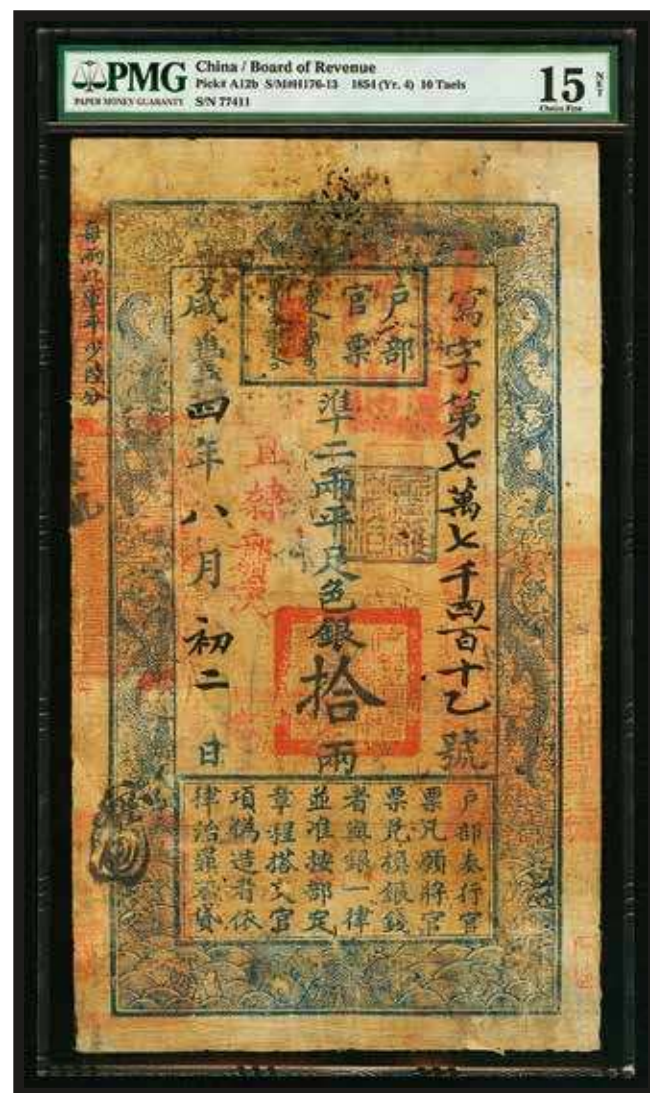 PMG
PAPER MONEY GUARANTY
China / Board of Revenue
Pick# A12b S/M#H176-13 1854 (Yr. 4) 10 Taels
S/N 77411
15 NET
Choice Fine
戶部
官票
寫字第七萬七千四百十乙號
準二兩平足色銀拾兩
咸豐四年八月初二日
每兩比庫平少陸分
直隸
戶部奏行官
票凡願將官
票兌換銀錢
者與銀一律
並准按部定
章程搭交官
項僞造者依
律治罪不貸